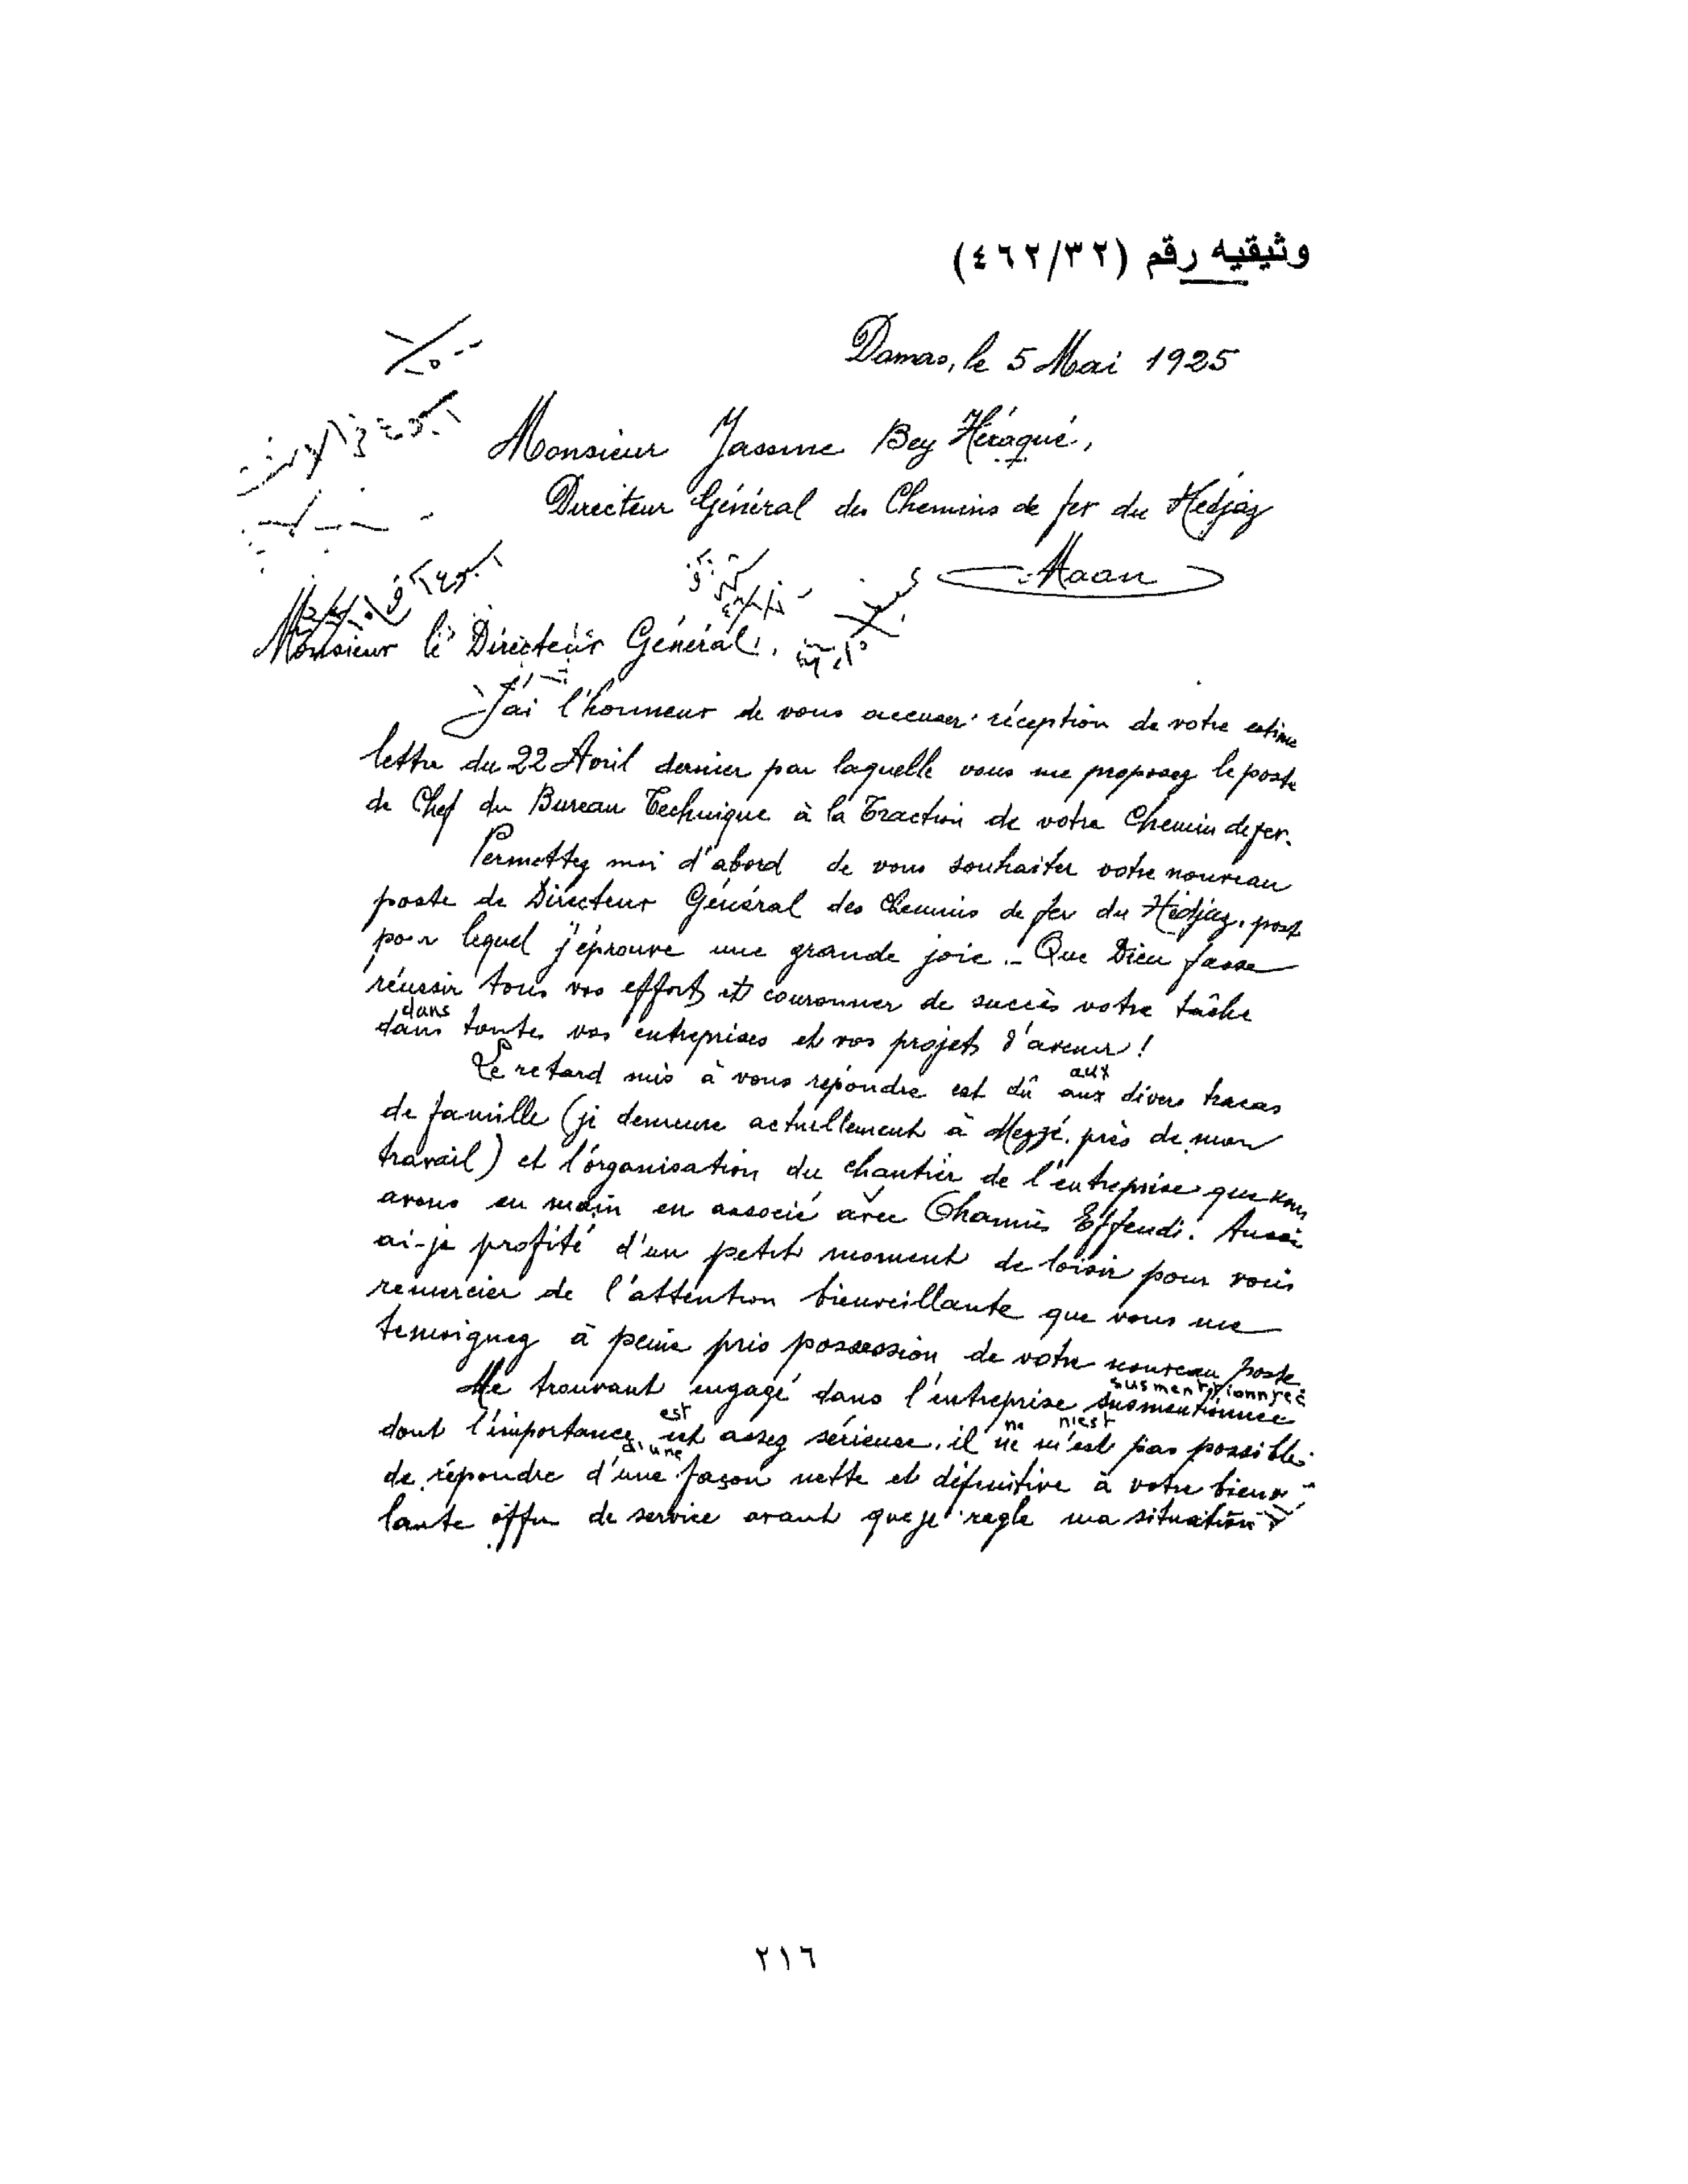 وثيقيه رقم (٤٦٢/٣٢)
Damas, le 5 Mai 1925
Monsieur Jassime Bey Héraqué,
Directeur Général des Chemins de fer du Hédjaz
Maan
Monsieur le Directeur Général,
J'ai l'honneur de vous accuser réception de votre estime
lettre du 22 Avril dernier par laquelle vous me proposez le poste
de Chef du Bureau Technique à la Traction de votre Chemin de fer.
Permettez moi d'abord de vous souhaiter votre nouveau
poste de Directeur Général des Chemins de fer du Hédjaz, post
pour lequel j'éprouve une grande joie. - Que Dieu fasse
réussir tous vos efforts et couronner de succès votre tâche
dans
dans toutes vos entreprises et vos projets d'avenir !
aux
Le retard mis à vous répondre est dû aux divers tracas
de famille (je demeure actuellement à Mezzé, près de mon
travail) et l'organisation du chantier de l'entreprise que nous
avons en main en associé avec Chamis Effendi. Aussi
ai-je profité d'un petit moment de loisir pour vous
remercier de l'attention bienveillante que vous me
temoignez à peine pris possession de votre nouveau poste
susmentionnée
Me trouvant engagé dans l'entreprise susmentionnée
est ne n'est
dont l'importance est assez sérieuse, il ne m'est pas possible
d'une
de répondre d'une façon nette et définitive à votre bienv
lante offre de service avant que je regle ma situation
٢١٦